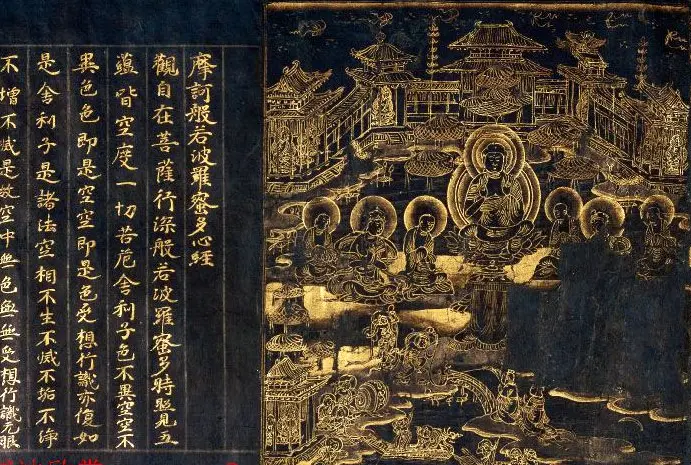 摩訶般若波羅蜜多心經
觀自在菩薩行深般若波羅蜜多時照見五
蘊皆空度一切苦厄舍利子色不異空空不
異色色即是空空即是色受想行識亦復如
是舍利子是諸法空相不生不滅不垢不淨
不增不減是故空中無色無無受想行識无眼